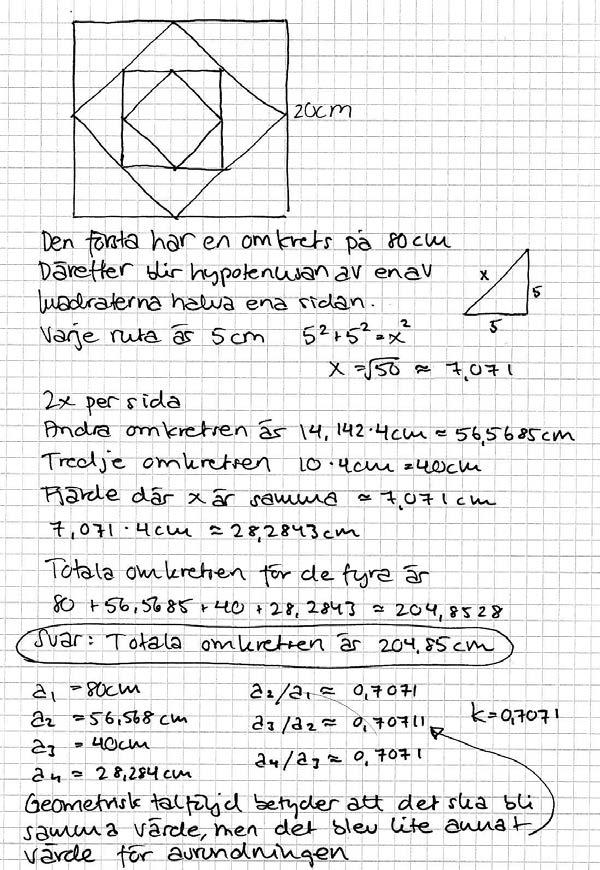 20cm
Den första har en omkrets på 80cm
Därefter blir hypotenusan av en av
kvadraterna halva ena sidan.
x
5
5
Varje ruta är 5cm 5²+5²=x²
x=√50 ≈ 7,071
2x per sida
Andra omkretsen är 14,142·4cm ≈ 56,5685cm
Tredje omkretsen 10·4cm=40cm
Fjärde där x är samma ≈ 7,071cm
7,071·4cm ≈ 28,2843cm
Totala omkretsen för de fyra är
80+56,5685+40+28,2843 ≈ 204,8528
Svar: Totala omkretsen är 204,85cm
a₁ =80cm a₂/a₁ ≈ 0,7071
a₂ =56,568cm a₃/a₂ ≈ 0,70711 k=0,7071
a₃ =40cm
a₄ = 28,284cm a₄/a₃ ≈ 0,7071
Geometrisk talföljd betyder att det ska bli
samma värde, men det blev lite annat
värde för avrundningen